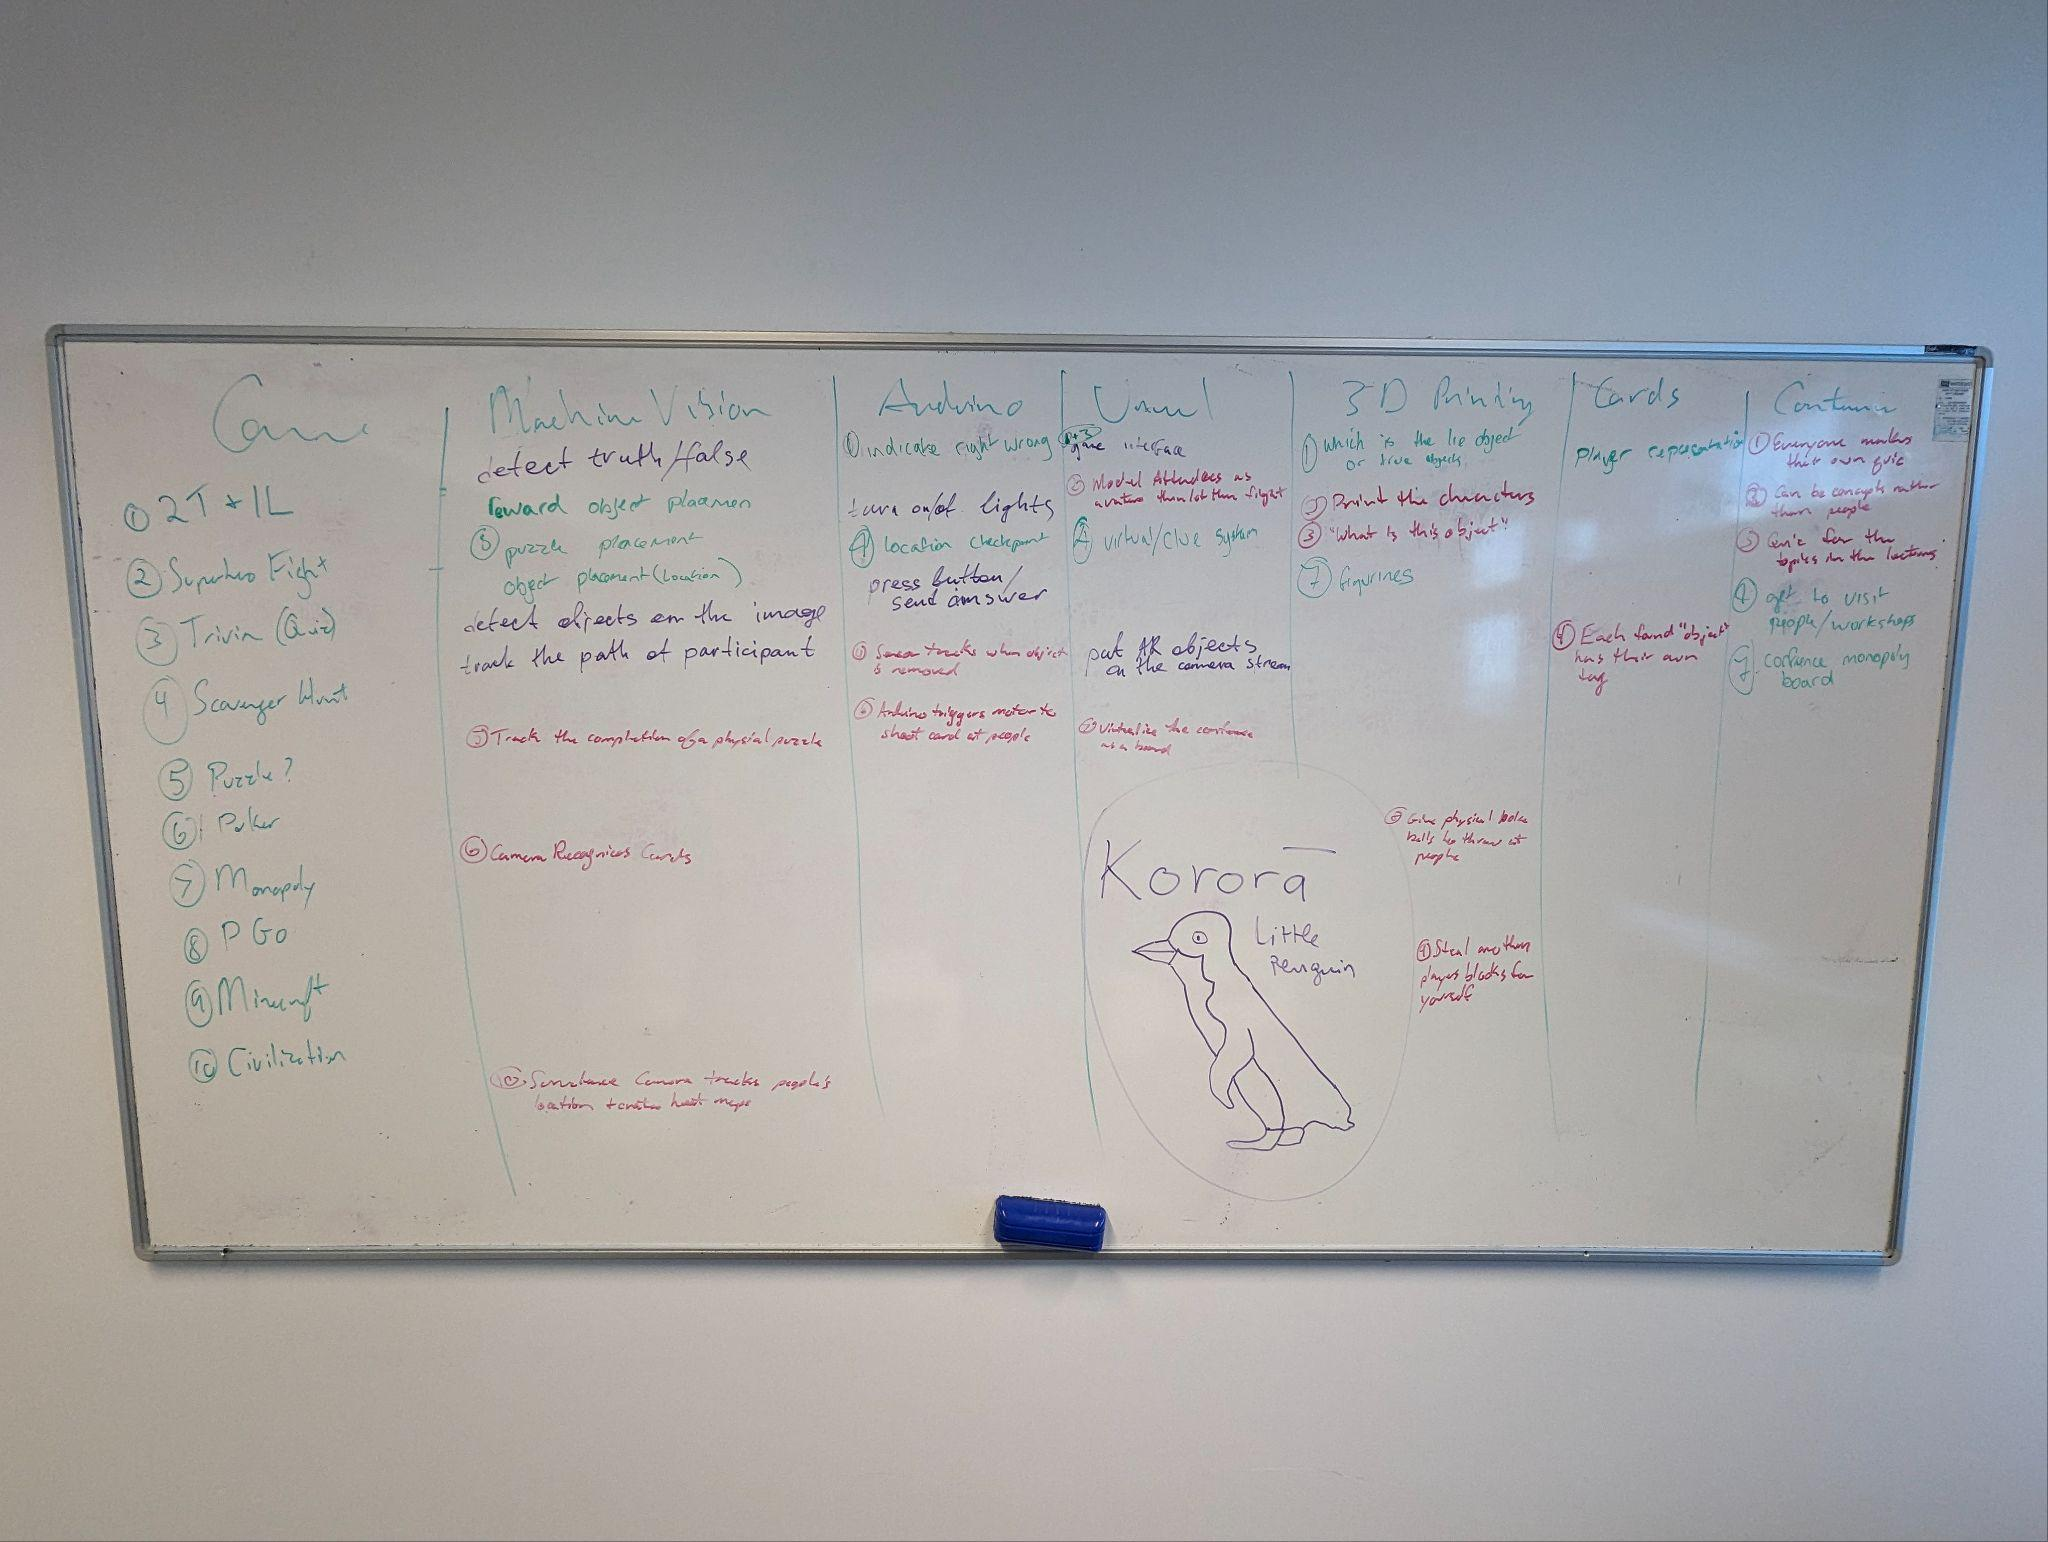 Game
① 2T + 1L
② Superhero Fight
③ Trivia (Quiz)
④ Scavenger Hunt
⑤ Puzzle?
⑥ Poker
⑦ Monopoly
⑧ P Go
⑨ Minecraft
⑩ Civilization
Machine Vision
detect truth/false
reward object placemen
puzzle placement
object placement (location)
detect objects on the image
track the path of participant
Track the completion of a physical puzzle
⑥ Camera Recognises Cards
⑩ Camera tracks people's
location heat maps
Arduino
① indicate right wrong
turn on/of lights
④ location checkpoint
press button/
send answer
Sensor tracks when object
is removed
⑥ Arduino triggers motor to
shoot card at people
game interface
② Model Attendees as
avatars then let them fight
④ virtual/clue system
put AR objects
on the camera stream
Virtualize the
as a board
Kororā
Little
Penguin
3D Printing
① which is the lie object
or true object
② Print the characters
③ "What is this object"
⑦ figurines
Give physical
balls to throw at
people
⑨ Steal another
players blocks for
yourself
Cards
player representation
④ Each found "object"
has their own
tag
① Everyone makes
their own quiz
② Can be concepts rather
than people
③ Quiz for the
topics in the lectures
④ get to visit
people/workshops
⑦ monopoly
board